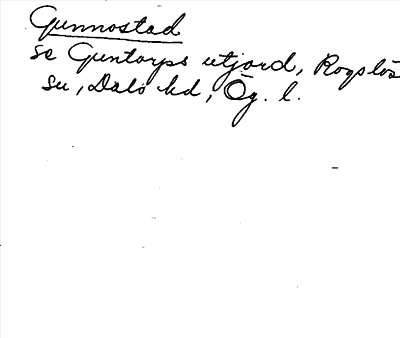 Gunnostad
se Guntorps utjord, Rogslösa
sn, Dals hd, Ög. l.